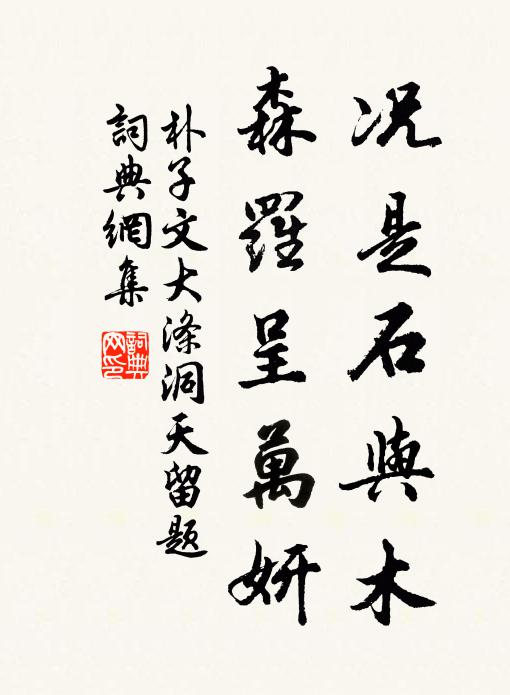 况是石與木
森羅呈萬妍
朴子文大滌洞天留题
詞典網集
詞典網印